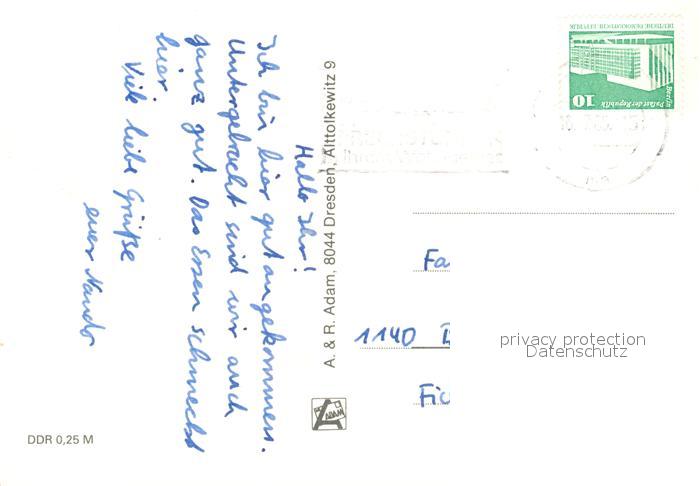 Hallo Ihr!
Ich bin hier gut angekommen.
Untergebracht sind wir auch
ganz gut. Das Essen schmeckt
hier.
Viele liebe Grüße
euer Nando
A. & R. Adam, 8044 Dresden, Alttolkewitz 9
ADAM
DDR 0,25 M
DEUTSCHE DEMOKRATISCHE REPUBLIK
Berlin
Palast der Republik
10
Fa
1140
Fic
privacy protection
Datenschutz